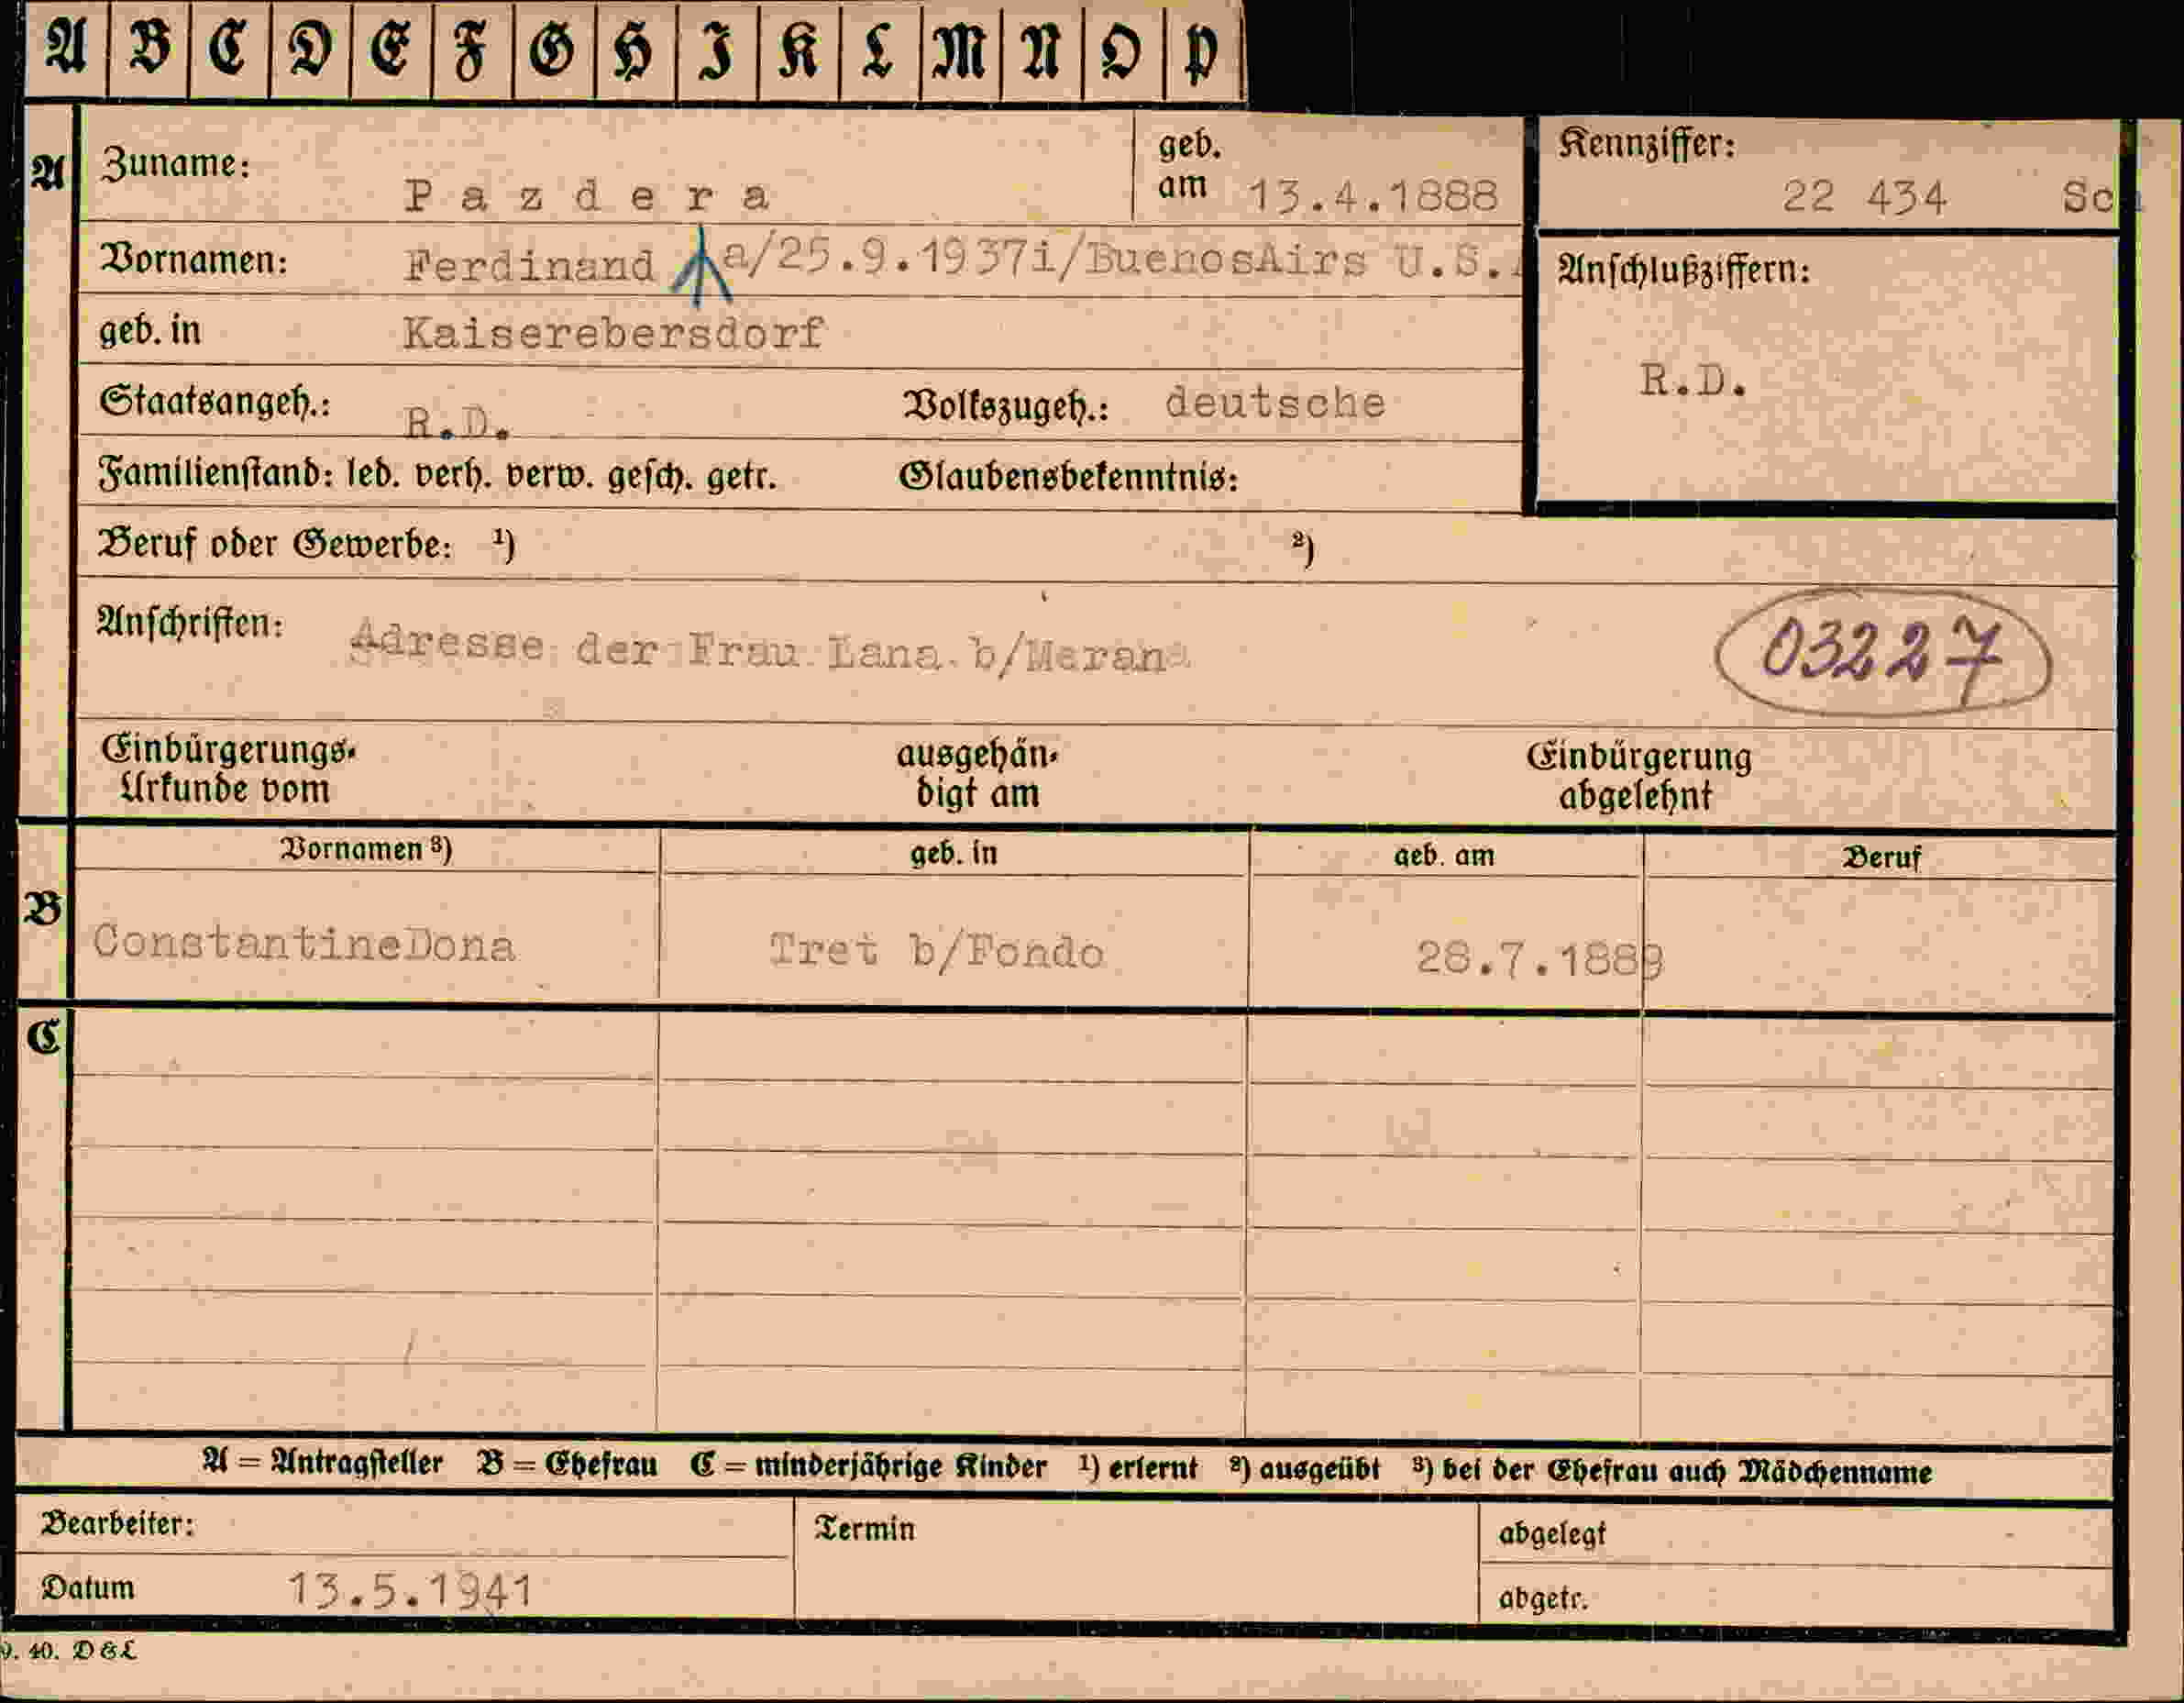 A B C D E F G H I K L M N O P
A Zuname: Pazdera geb. am 13.4.1888 Kennziffer: 22 434 Sc
Vornamen: Ferdinand a/25.9.1937i/BuenosAirs U.S. Anschlußziffern:
geb. in Kaiserebersdorf
R.D.
Staatsangeh.: R.D. Volkszugeh.: deutsche
Familienstand: led. verh. verw. gesch. getr. Glaubensbekenntnis:
Beruf oder Gewerbe: 1) 2)
Anschriften: Adresse der Frau Lana b/Meran 03227
Einbürgerungs- ausgehän- Einbürgerung
Urkunde vom digt am abgelehnt
Vornamen 3) geb. in geb. am Beruf
B ConstantineDona Tret b/Fondo 28.7.1889
C
A = Antragsteller B = Ehefrau C = minderjährige Kinder 1) erlernt 2) ausgeübt 3) bei der Ehefrau auch Mädchenname
Bearbeiter: Termin abgelegt
Datum 13.5.1941 abgetr.
9. 40. D&L